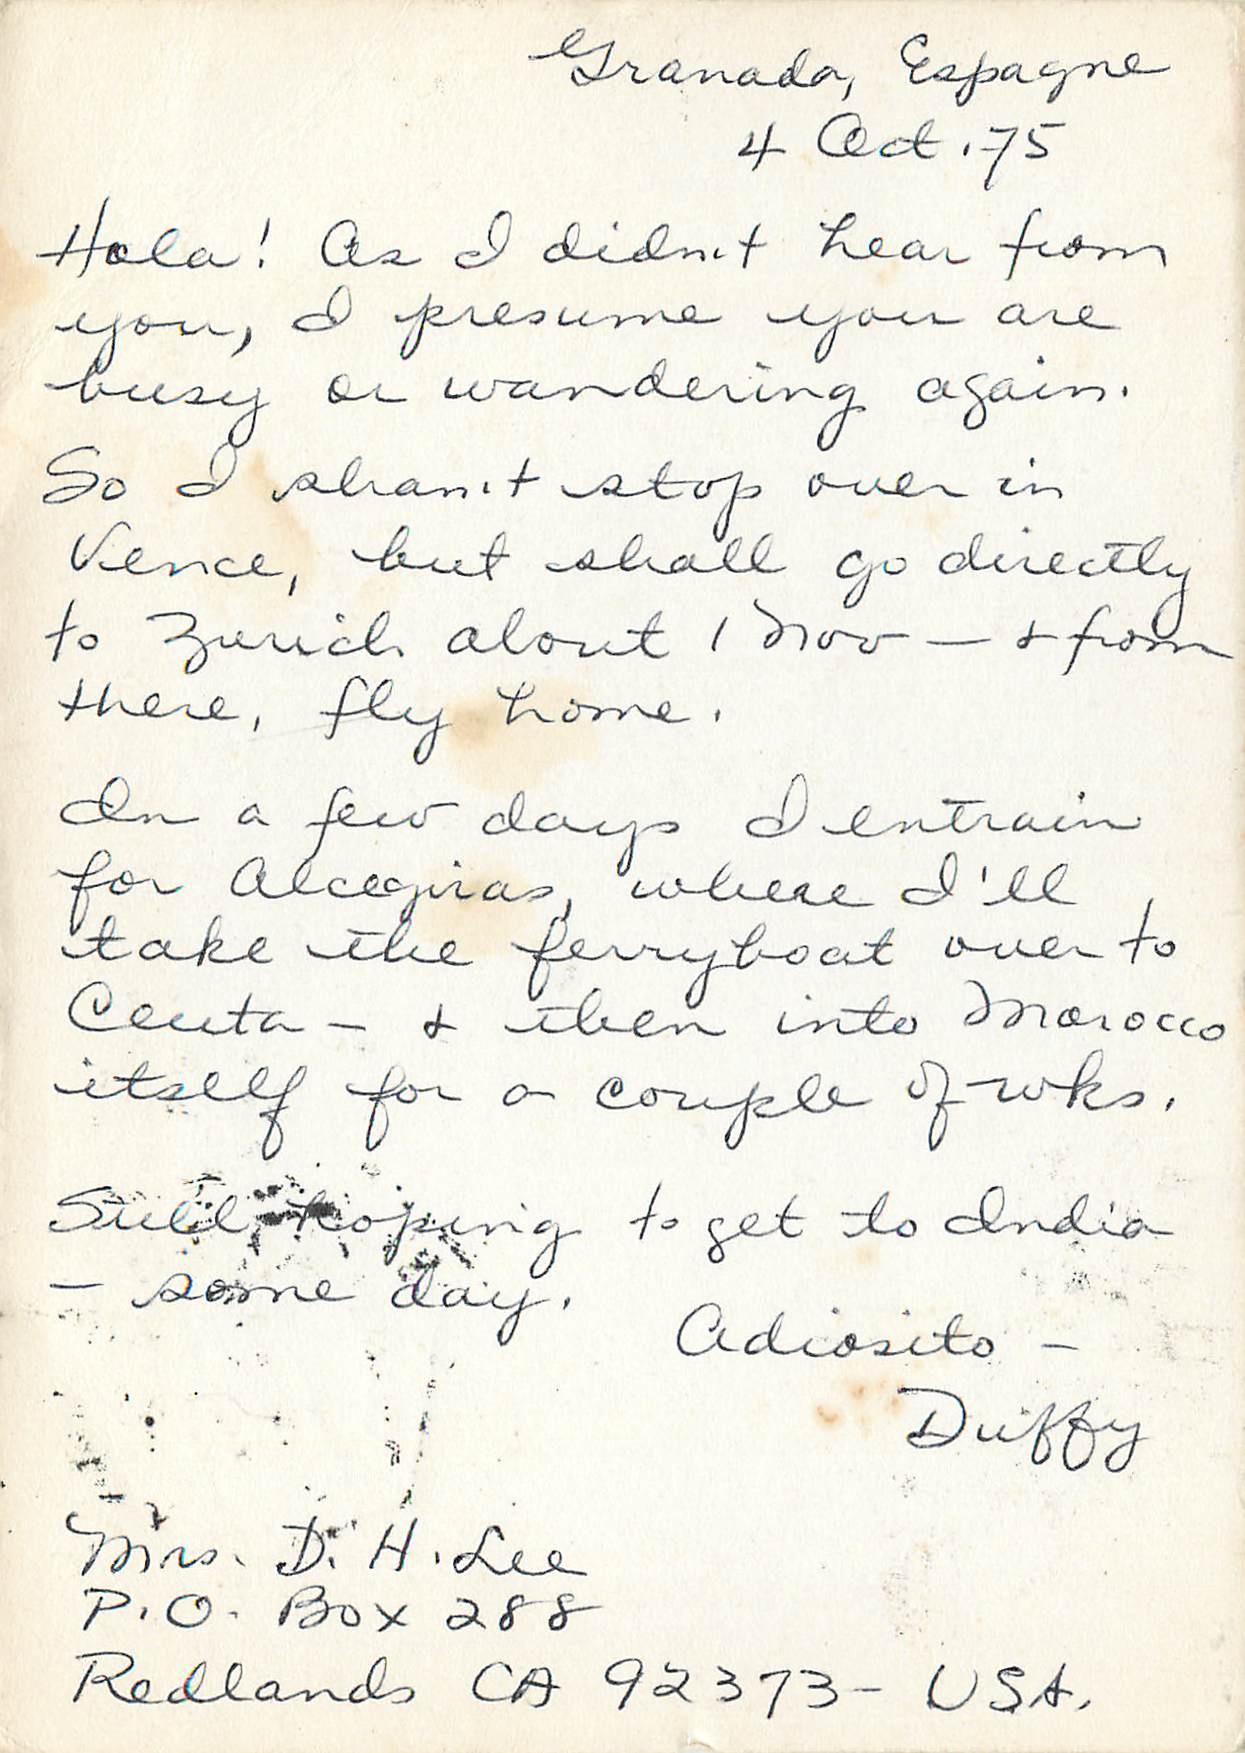 Granada, Espagne
4 Oct. 75
Hola! As I didn't hear from
you, I presume you are
busy or wandering again.
So I shan't stop over in
Vence, but shall go directly
to Zurich about 1 Nov — & from
there, fly home.
In a few days I entrain
for Alcegiras, where I'll
take the ferryboat over to
Ceuta — & then into Morocco
itself for a couple of wks.
Still hoping to get to India
— some day.
Adiosito —
Duffy
Mrs. D. H. Lee
P.O. Box 288
Redlands CA 92373 — USA.